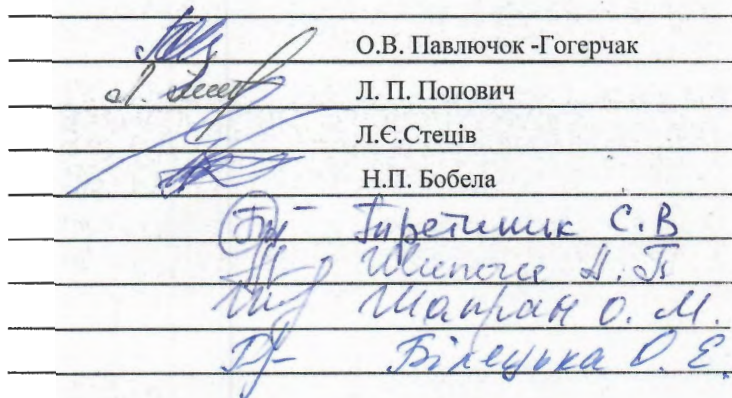 О.В. Павлючок -Гогерчак
Л. П. Попович
Л.Є.Стеців
Н.П. Бобела
С.В
Н. П
Шапран О. М.
Білецька О. Е.